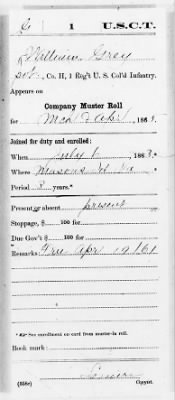 G | 1 | U.S.C.T.
William Grey
Pvt., Co. H, 1 Reg't U. S. Col'd Infantry.
Appears on
Company Muster Roll
for Mch & Apr, 186
Joined for duty and enrolled:
When July 1, 1863.*
Where Masons
Period 3 years.*
Present or absent present
Stoppage, $ 100 for
Due Gov't $ 100 for
Remarks: Free Apr 19 1861
*See enrollment on card from muster-in roll.
Book mark:
(358c) Copyist.